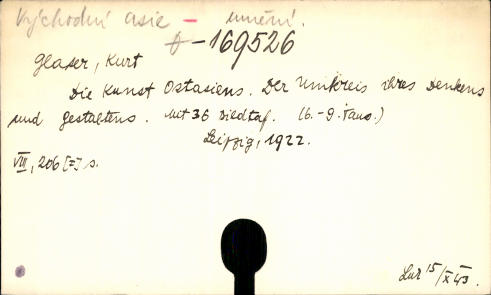 Východní Asie – umění.
D-169526
Glaser, Kurt
Die Kunst Ostasiens. Der Umkreis ihres Denkens
und Gestaltens. Mit 36 Bildtaf. (6.-9. Taus.)
Leipzig, 1922.
VIII, 206 [2] s.
15/X 43.